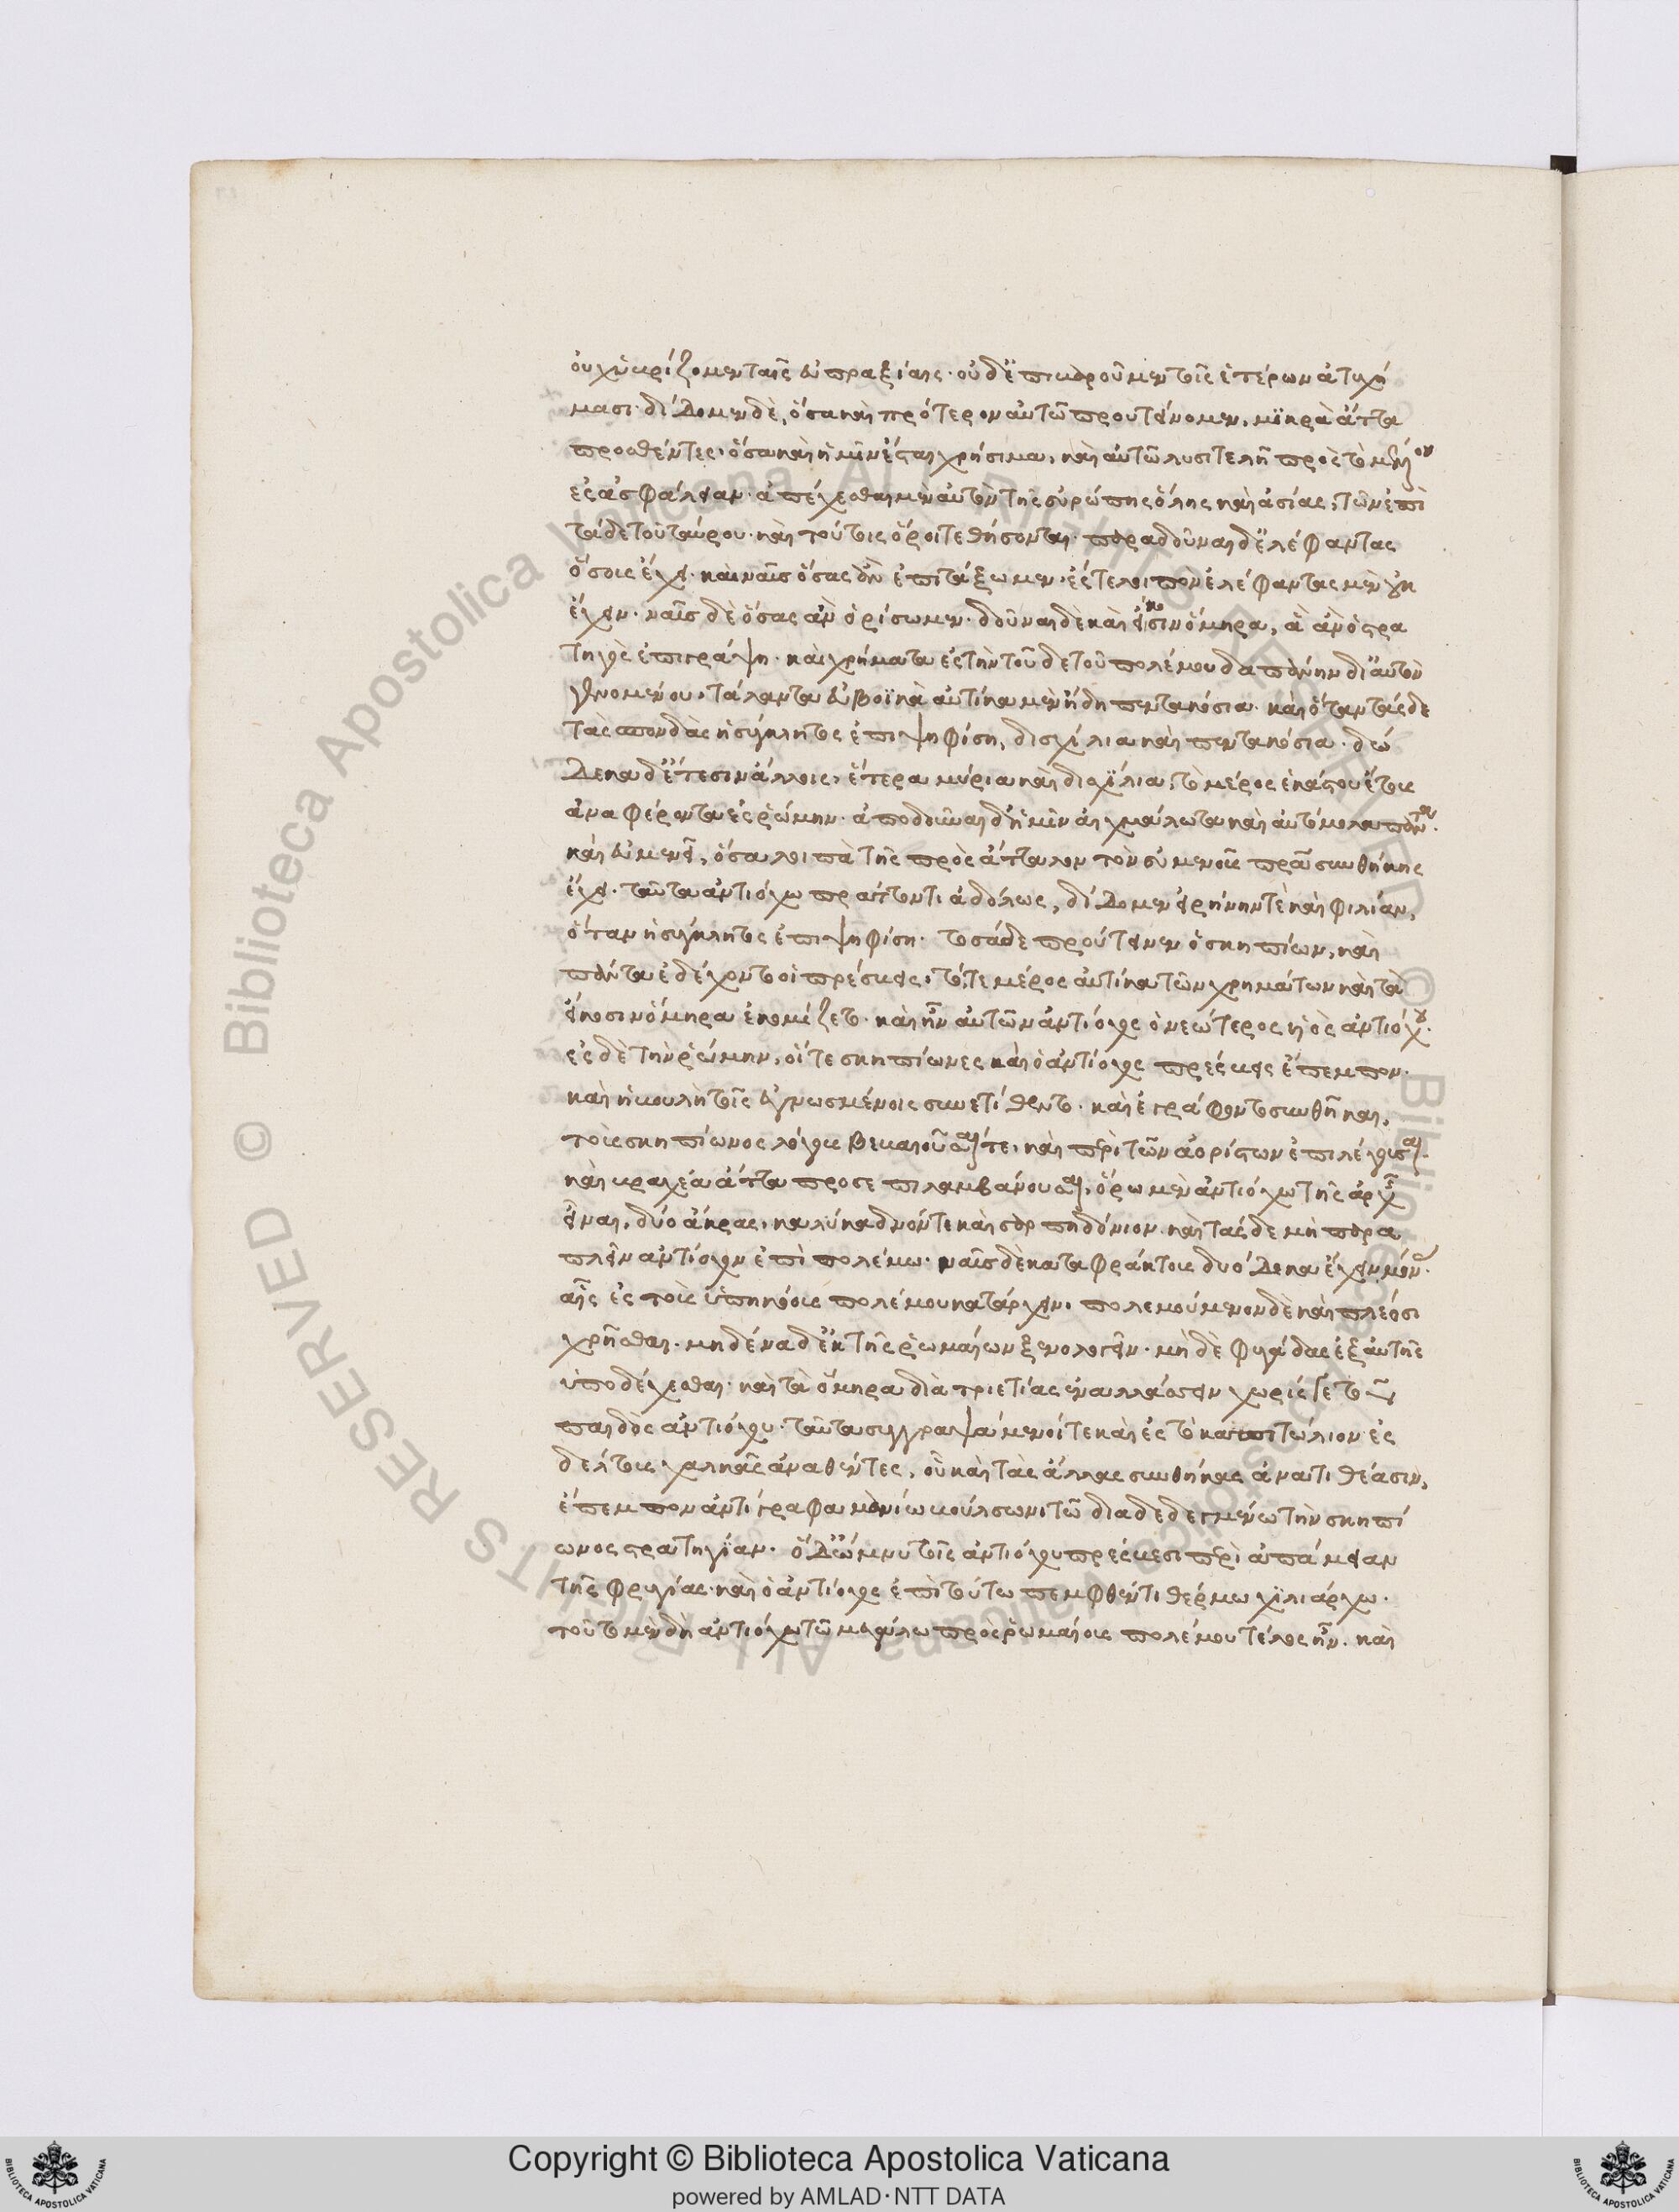 οὐχ ὑβρίζομεν ταῖς εὐπραξίαις· οὐδ' ἐπιβαροῦμεν τοῖς ἑτέρων ἀτυχή
μασι· δίδομεν δὲ, ὅσα καὶ πρότερον αὐτῶ προυτείνομεν, μικρὰ ἄττα
προσθέντες· ὅσα καὶ ἡμῖν ἔσται χρήσιμα, καὶ αὐτῶ λυσιτελῆ πρὸς τὸ μέλλον
ἐς ἀσφάλειαν· ἀπέχεσθαι μὲν αὐτὸν τῆς εὐρώπης ὅλης καὶ ἀσίας, τῶν ἐπὶ
τάδε τοῦ ταύρου· καὶ τούτοις ὅροι τεθήσονται· παραδοῦναι δ' ἐλέφαντας
ὅσους ἔχει· καὶ ναῦς ὅσας ἂν ἐπιτάξωμεν· ἔς τε λοιπὸν ἐλέφαντας μὲν οὐκ
ἔχειν· ναῦς δὲ ὅσας ἂν ὁρίσωμεν· δοῦναι δὲ καὶ εἴκοσιν ὅμηρα, ἃ ἂν ὁ στρα
τηγὸς ἐπιγράψη· καὶ χρήματα ἐς τὴν τοῦδε τοῦ πολέμου δαπάνην δι' αὐτὸν
γενομένου· τάλαντα εὐβοϊκὰ αὐτίκα μὲν ἤδη πεντακόσια· καὶ ὅταν τάσδε
τὰς σπονδὰς ἡ σύγκλητος ἐπιψηφίση, δισχίλια καὶ πεντακόσια· δώ
δεκα δ' ἔτεσιν ἄλλοις, ἕτερα μύρια καὶ δισχίλια, τὸ μέρος ἑκάστου ἔτους
ἀναφέροντα ἐς ῥώμην· ἀποδοῦναι δ' ἡμῖν αἰχμάλωτα καὶ αὐτόμολα πάντα·
καὶ εὐμενεῖ, ὅσα λοιπὰ τῆς πρὸς ἄτταλον τὸν εὐμενοῦς πατέρα συνθήκης
ἔχει· ταῦτα ἀντιόχω πράττοντι ἀδόλως, δίδομεν εἰρήνην τὲ καὶ φιλίαν,
ὅταν ἡ σύγκλητος ἐπιψηφίση· τοσάδε προύτεινεν ὁ σκηπίων, καὶ
πάντα ἐδέχοντο οἱ πρέσβεις· τό, τε μέρος αὐτίκα τῶν χρημάτων καὶ τὰ
εἴκοσιν ὅμηρα ἐκομίζετο· καὶ ἦν αὐτῶν ἀντίοχος ὁ νεώτερος υἱὸς ἀντιόχου·
ἐς δὲ τὴν ῥώμην, οἵ τε σκηπίωνες καὶ ὁ ἀντίοχος πρέσβεις ἔπεμπον·
καὶ ἡ βουλὴ τοῖς ἐγνωσμένοις συνετίθετο· καὶ ἐγράφοντο συνθῆκαι,
τοὺς σκηπίωνος λόγους βεβαιοῦσαί τε, καὶ περὶ τῶν ἀορίστων ἐπιλέγουσαι·
καὶ βραχέα ἄττα προσεπιλαμβάνουσαι, ὅρω μὲν ἀντιόχω τῆς ἀρχῆς
εἶναι, δύο ἄκρας, καλύκαδνόν τε καὶ σαρπηδόνιον· καὶ τάσδε μὴ παρα
πλεῖν ἀντίοχον ἐπὶ πολέμω· ναῦς δὲ καταφράκτους δυόδεκα ἔχειν μόνας·
αἷς ἐς τοὺς ὑπηκόους πολέμου κατάρχειν· πολεμούμενον δὲ καὶ πλέοσι
χρῆσθαι· μηδένα δ' ἐκ τῆς ῥωμαίων ξενολογεῖν· μὴ δὲ φυγάδας ἐξ αὐτῆς
ὑποδέχεσθαι· καὶ τὰ ὅμηρα διὰ τριετίας ἐναλλάσσειν χωρίς γε τοῦ
παιδὸς ἀντιόχου· ταῦτα συγγραψάμενοί τε καὶ ἐς τὸ καπιτώλιον ἐς
δέλτους χαλκᾶς ἀναθέντες, οὗ καὶ τὰς ἄλλας συνθήκας ἀνατιθέασιν,
ἔπεμπον ἀντίγραφα μανίω βούλσωνι τῶ διαδεδεγμένω τὴν σκηπί
ωνος στρατηγίαν· ὁ δ' ὤμνυ τοῖς ἀντιόχου πρέσβεσι περὶ ἀπάμειαν
τῆς φρυγίας· καὶ ὁ ἀντίοχος ἐπὶ τούτω πεμφθέντι θέρμω χιλιάρχω·
τοῦτο μὲν δὴ ἀντιόχω τῶ μεγάλω πρὸς ῥωμαίους πολέμου τέλος ἦν· καὶ
© Biblioteca Apostolica Vaticana ALL RIGHTS RESERVED
Copyright © Biblioteca Apostolica Vaticana
powered by AMLAD·NTT DATA